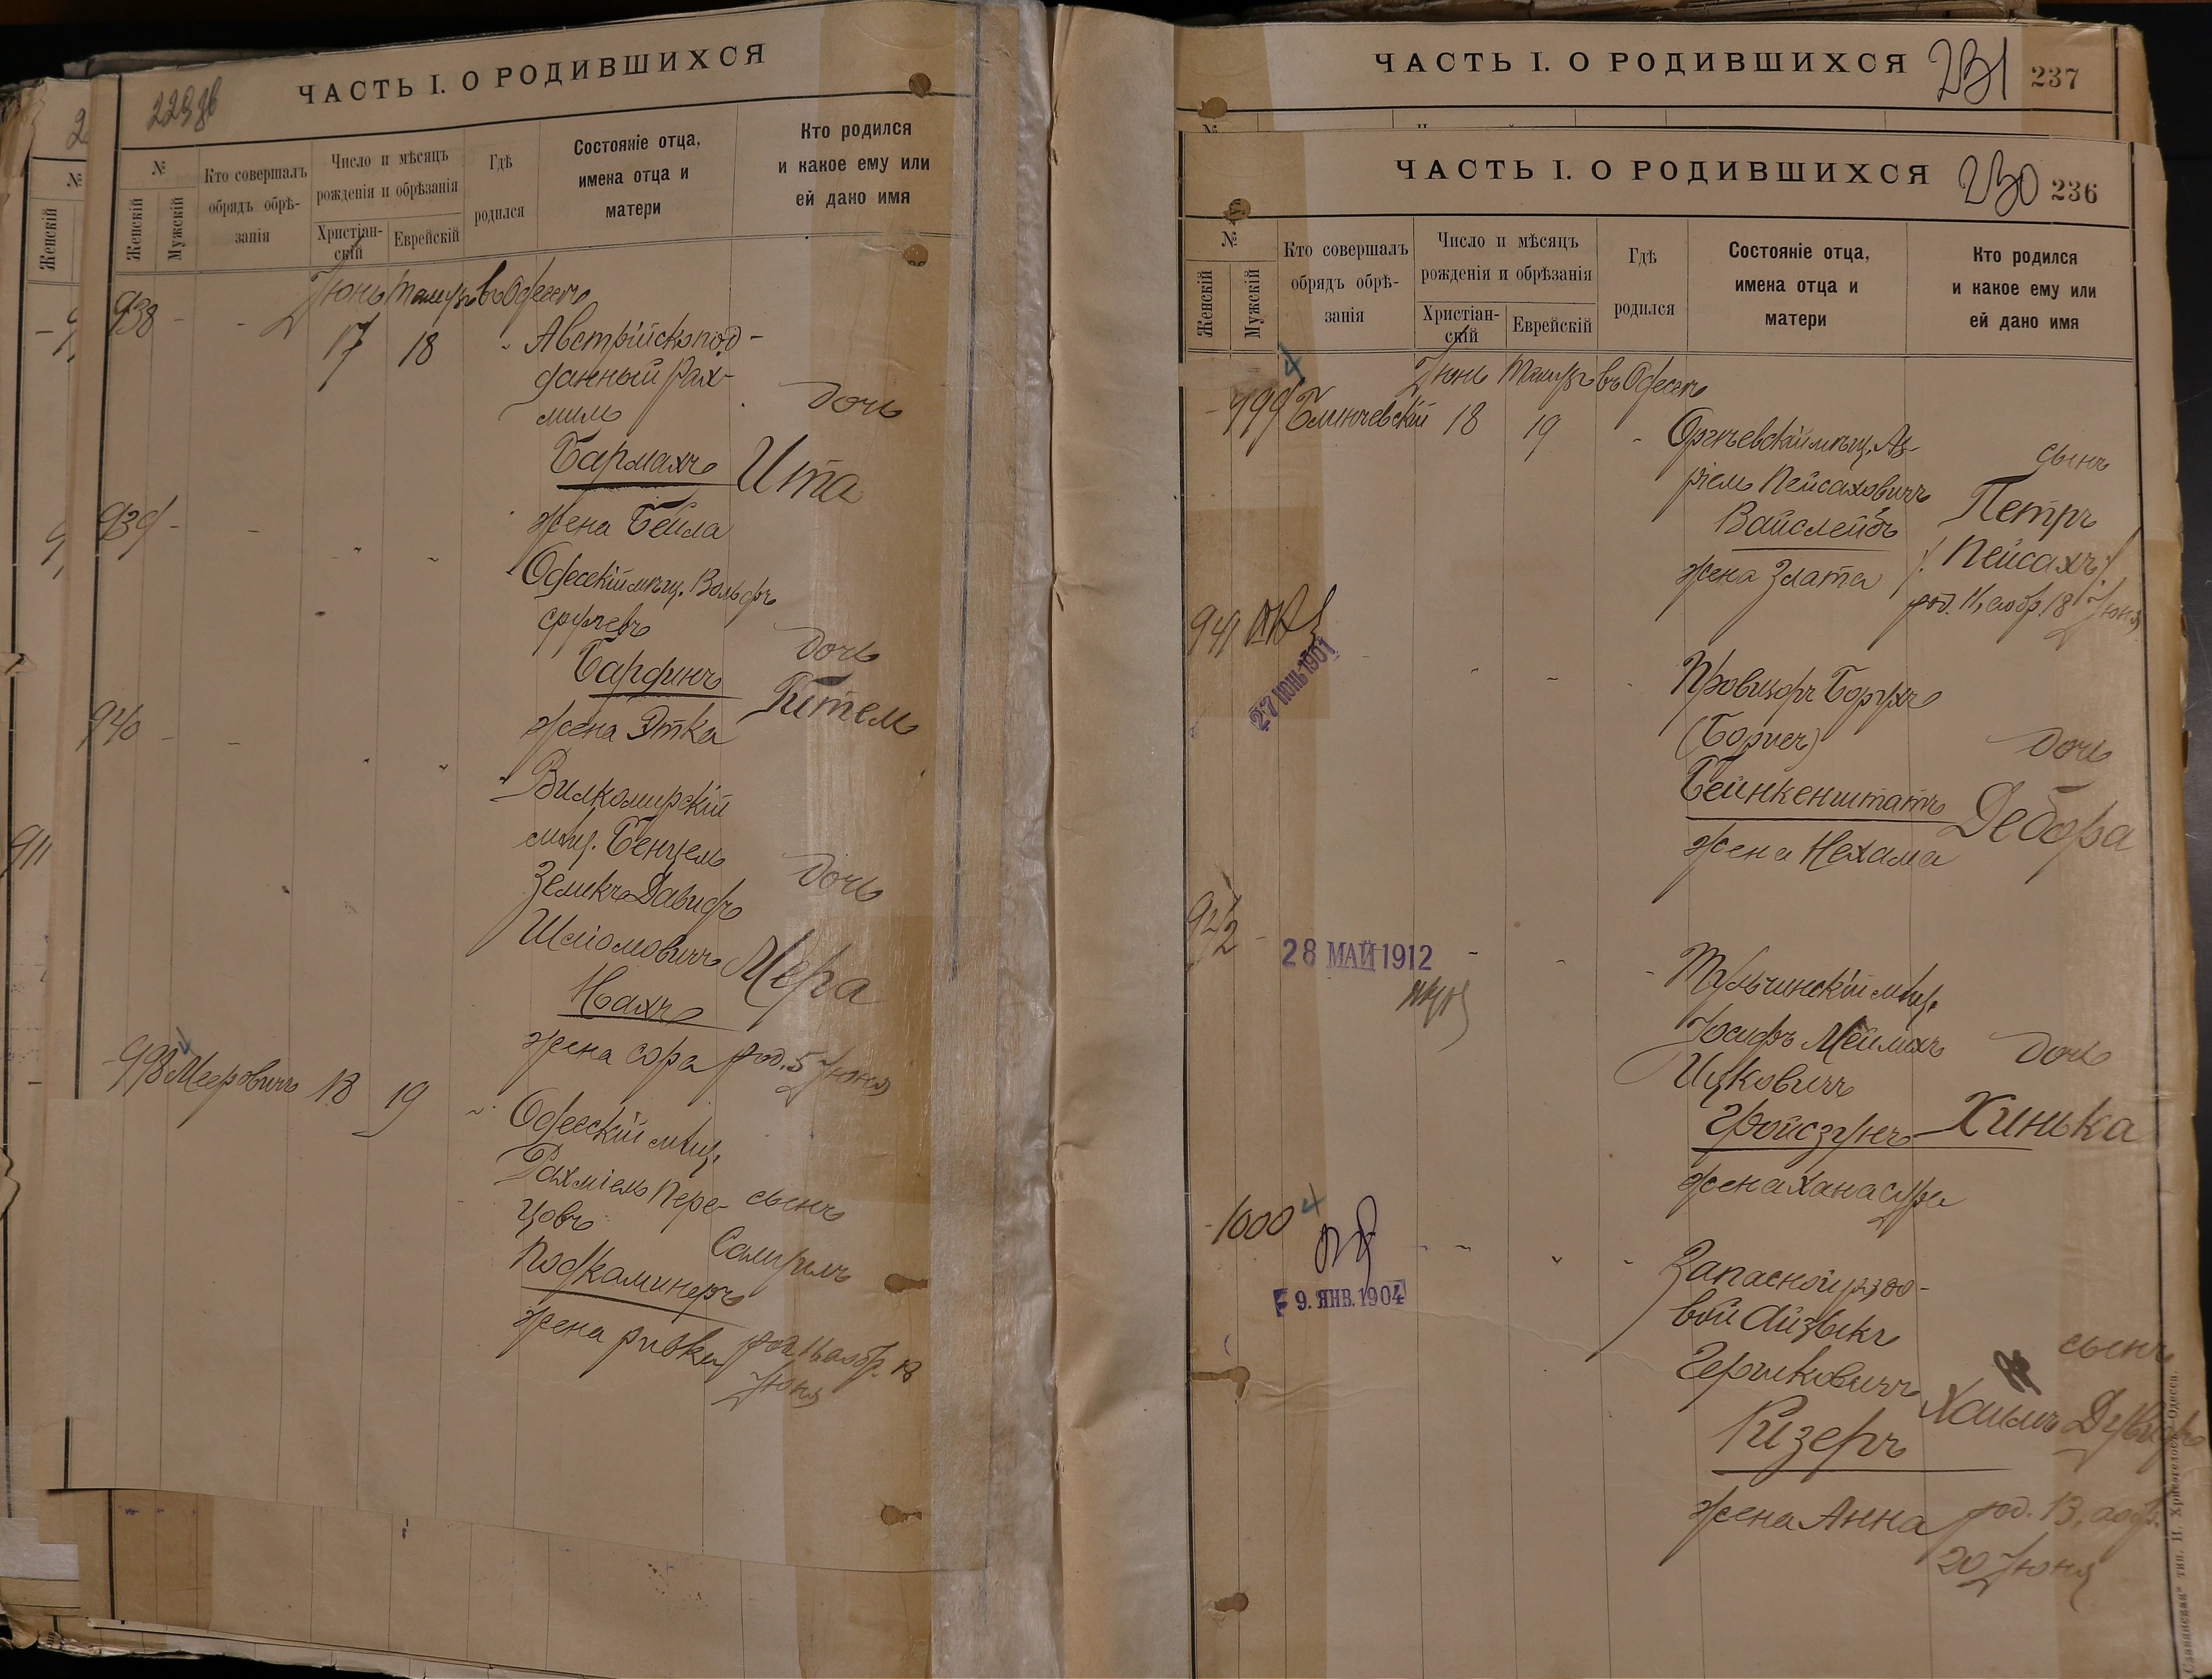 ЧАСТЬ I. О РОДИВШИХСЯ
№
Женскій
Мужскій
Кто совершалъ
обрядъ обрѣ-
занія
Число и мѣсяцъ
рожденія и обрѣзанія
Христіан-
скій
Еврейскій
Гдѣ
родился
Состояніе отца,
имена отца и
матери
Кто родился
и какое ему или
ей дано имя
Іюнь Тамузъ въ Одессѣ
938 - - 17 18 " Австрійско под-
данный Рах-
миль
дочь
Бармахъ Ита
жена Бейла
939 - - " "
Одесскій мѣщ. Вольфъ
Сруловъ
дочь
Барфинъ Гитель
жена Этка
940 - - " "
Вилкомирскій
мѣщ. Бенцель
Зеликъ Давидъ
дочь
Шліомовичъ Мера
Нахъ
жена Сора род. 5 Іюня
998 Мееровичъ 18 19 "
Одесскій мѣщ.
Рахміель Пере-
цовъ
сынъ
Подкаминеръ Самуилъ
жена Ривка род. 11 а обр. 18
Іюня
ЧАСТЬ I. О РОДИВШИХСЯ 231 237
ЧАСТЬ I. О РОДИВШИХСЯ 230 236
№
Женскій
Мужскій
Кто совершалъ
обрядъ обрѣ-
занія
Число и мѣсяцъ
рожденія и обрѣзанія
Христіан-
скій
Еврейскій
Гдѣ
родился
Состояніе отца,
имена отца и
матери
Кто родился
и какое ему или
ей дано имя
Іюнь Тамузъ въ Одессѣ
- 999 Блинчевскій 18 19 " Оргѣевскій мѣщ. Ав-
ріем Пейсаховичъ
сынъ
Вайслейбъ Петръ
/: Пейсахъ :/
жена Злата
род. 11, а обр. 18 Іюня
941
27 ІЮНЬ 1901
Провизоръ Борухъ
(Борисъ)
дочь
Бейнкенштатъ Дебора
жена Нехама
942 -
28 МАЙ 1912
Тульчинскій мѣщ.
Іосифъ Меймахъ
дочь
Ицковичъ
Гройсзунъ Хинька
жена Хана Сура
- 1000 4
9. ЯНВ. 1904
Запасной рядо-
вой Айзыкъ
сынъ
Гершковичъ
Хаимъ Дувидъ
Кизеръ
жена Анна род. 13, а обр.
20 Іюня
„Славянская“ тип. Н. Хрисогелосъ, Одесса.